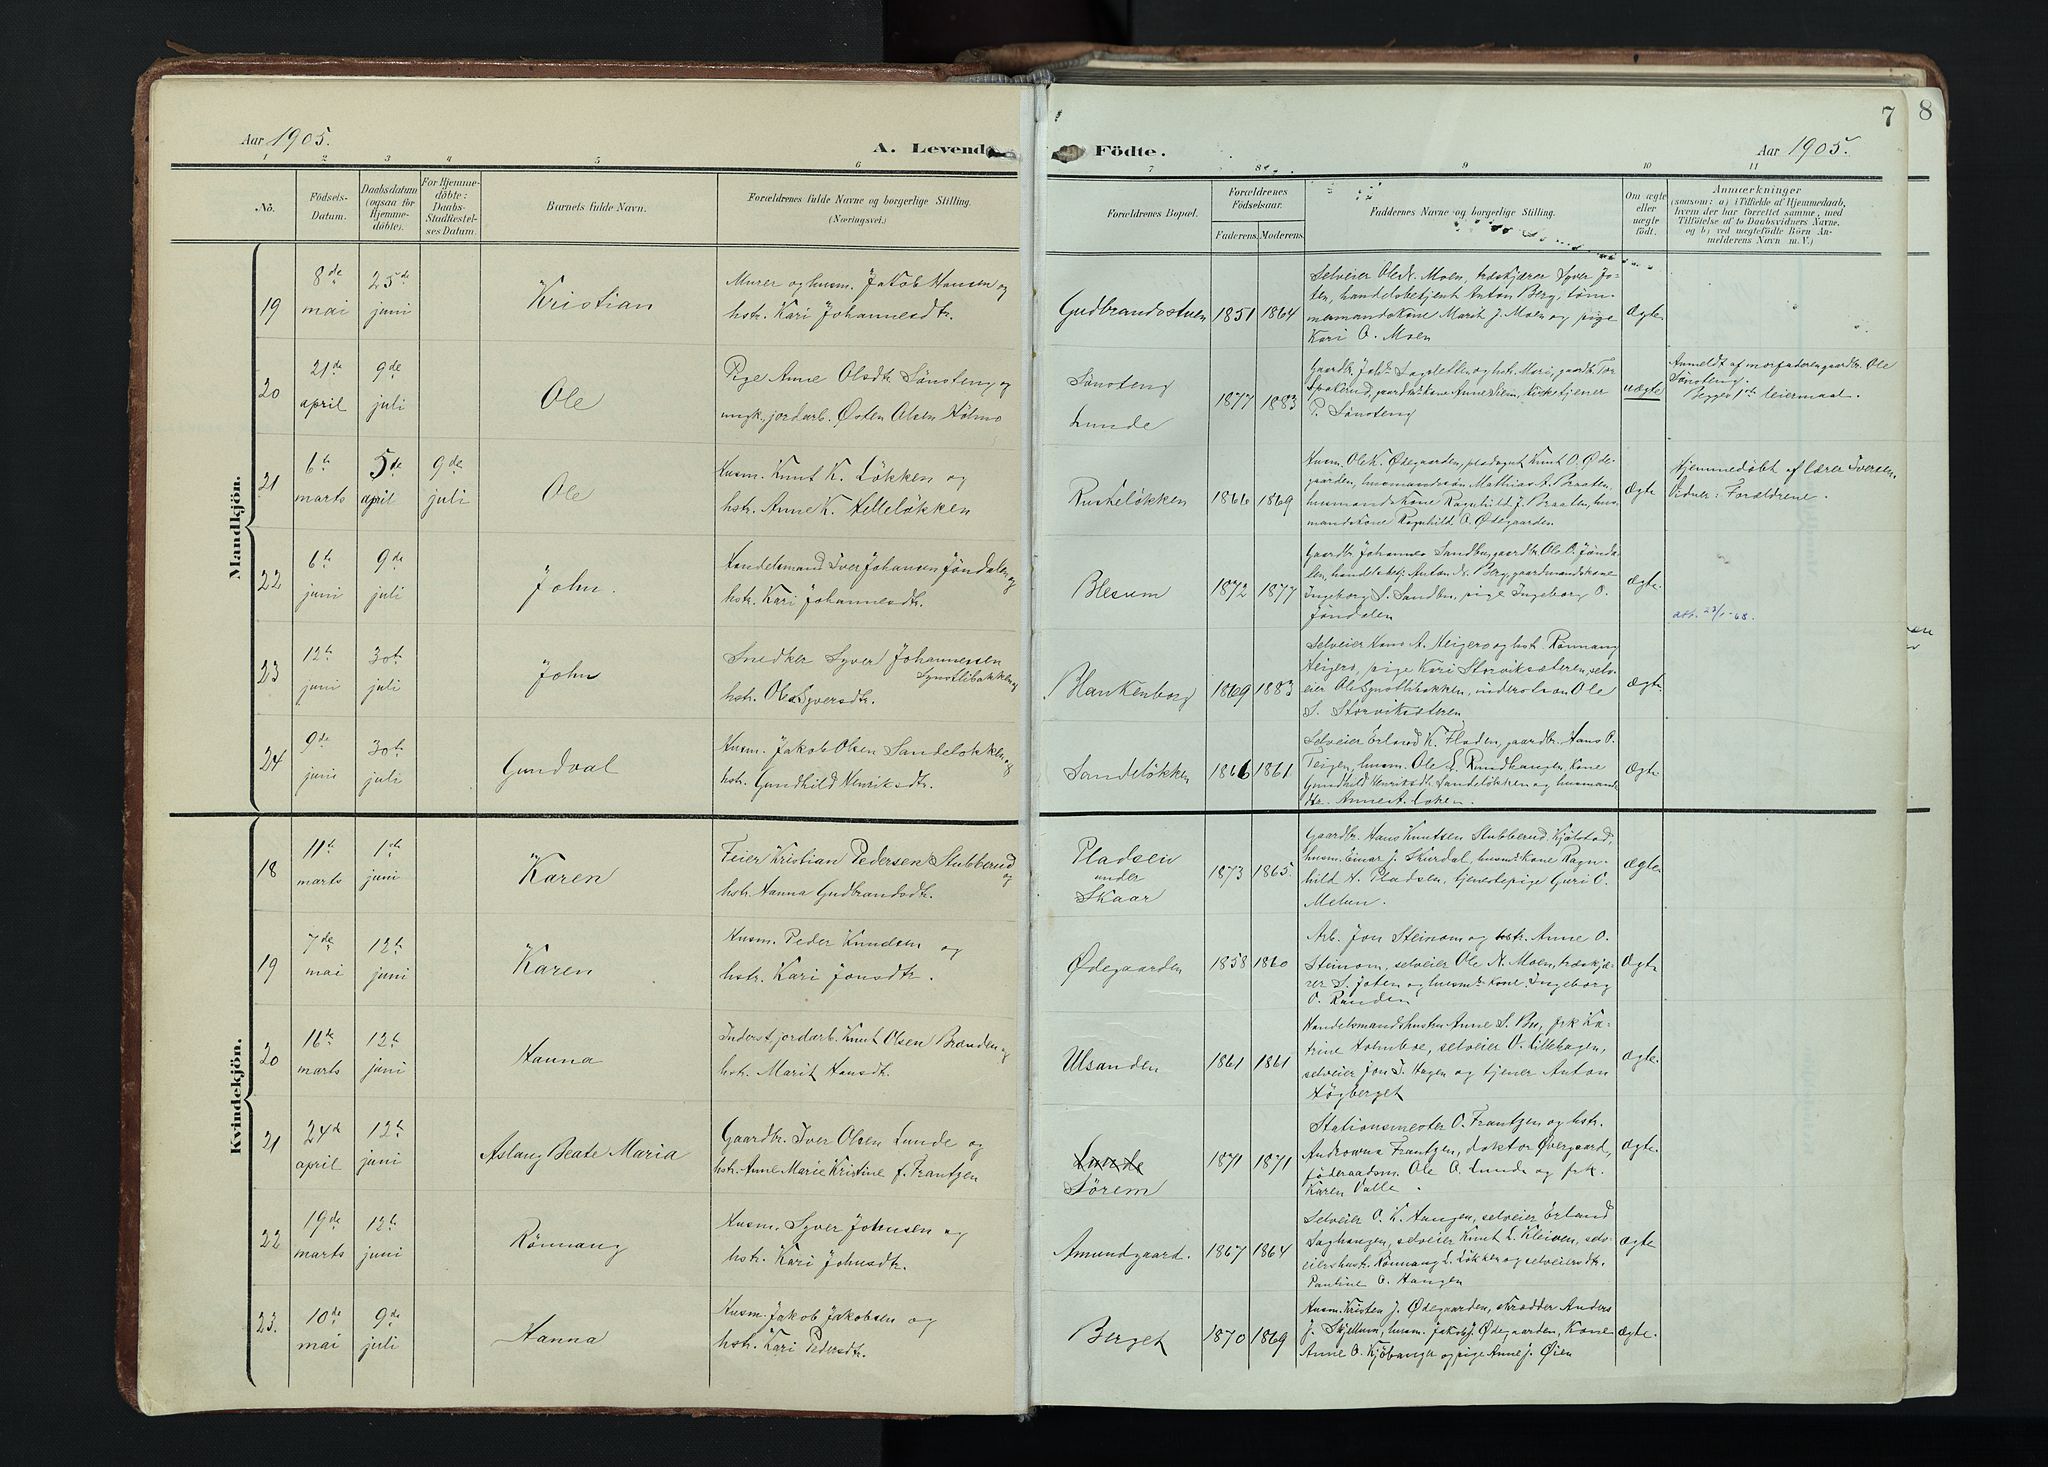 Aar 1905.
A. Levende
Födte.
Aar 1905.
7
8
1 2 3 4 5 6 7 8 9 10 11
No.
Födsels-Datum.
Daabsdatum (ogsaa for Hjemmedöbte).
For Hjemmedöbte: Daabs-Stadfæstelses Datum.
Barnets fulde Navn.
Forældrenes fulde Navne og borgerlige Stilling. (Næringsvei.)
Forældrenes Bopæl.
Forældrenes Födselsaar.
Faderens. Moderens.
Faddernes Navne og borgerlige Stilling.
Om ægte eller uægte födt.
Anmærkninger
(saasom: a) i Tilfælde af Hjemmedaab, hvem der har forrettet samme, med Tilföielse af to Daabsvidners Navne, og b) ved uægtefödte Börn Anmelderens Navn m. V.)
Mandkjön.
19
8de mai
25de juni
Kristian
Murer og husm. Jakob Hansen og
hstr. Kari Johannesdtr.
Gudbrandsstuen
1851 1864
Selveier Ole N. Moen, træskjærer Syver Jo-
ten, handelsbetjent Anton Berg, töm-
mermandskone Marit J. Moen og pige
Kari O. Moen
Ægte
20
21de april
9de juli
Ole
Pige Anne Olsdtr. Sönsteng og
ungk. jordarb. Østen Olsen Holmo
Sönsteng
Lunde
1877 1883
P. Sönsteng
uægte
Anmeldt af morfaderen gaardbr. Ole
Sönsteng.
Begges 1ste leiermaal.
21
6te marts
5de april
9de juli
Ole
Husm. Knut K. Løkken og
hstr. Anne K. Helleløkken
Rusteløkken
1866 1869
Husm. Ole K. Ødegaarden, pladsgut Knut O. Øde-
gaarden, husmandssøn Mathias A. Braaten,
husmandskone Ragnhild J. Braaten, hus-
mandskone Ragnhild O. Ødegaarden
Ægte
Hjemmedöbt af lærer Iversen.
Vidner: Forældrene.
22
6te juni
9de juli
John.
Handelsmand Iver Johansen Jöndalen og
hstr. Kari Johannesdtr.
Blessum
1872 1877
Gaardbr. Johannes Sandbu, gaardbr. Ole O. Jönda-
len, handelsbetj. Anton N. Berg, gaardmandskone
Ingeborg S. Sandbu, pige Ingeborg O.
Jöndalen
Ægte
23
12te juni
30te juli
John
Snedker Syver Johannessen
Synstlibakken og
hstr. Ole Syversdtr.
Blankenborg
1869 1883
Selveier Hans A. Heigero og hstr. Rönnaug
Heigero, pige Kari Storviksæteren, selv-
eier Ole Synstlibakken, underoff Ole
S. Storviksæteren
Ægte
24
9de juni
30te juli
Gundval
Husm. Jakob Olsen Sandeløkken og
hstr. Gundhild Henriksdtr.
Sandeløkken
1866 1861
Selveier Erland K. Fladen, gaardbr. Hans O.
Teigen, husm. Ole L. Rundhaugen, kone
Gundhild Henriksdtr. Sandeløkken og husmands
Anne A. Loken.
Ægte
Kvindekjön.
18
11te marts
1ste juni
Karen
Feier Kristian Pedersen Stubberud og
hstr. Hanna Gudbrandsdtr.
Pladsen
under
Skaar
1873 1865.
Gaardbr. Hans Knutsen Stubberud Kjølstad,
husm. Einar J. Skurdal, husm. kone Ragn-
hild A. Pladsen, tjenestepige Guri O.
Melum.
Ægte
19
7de mai
12te juni
Karen
Husm. Peder Knudsen og
hstr. Kari Jonsdtr.
Ødegaarden
1858 1860
Arb. Jon Steinom og hstr. Anne O.
Steinom, selveier Ole N. Moen, træskjæ-
rer S. Joten og husm. kone Ingeborg
O. Randen
Ægte
20
16de marts
12te juni
Hanna
Inderst, jordarb. Knut Olsen Brænden og
hstr. Marit Hansdtr.
Ulsanden
1861 1861
Handelsmandshustru Anne S. Bu, frk Ka-
trine Holmboe, selveier O. Lillehagen,
selveier Jon I. Hagen og tjener Anton
Högberget
Ægte
21
24de april
12te juni
Aslaug Beate Maria
Gaardbr. Iver Olsen Lunde og
hstr. Anne Marie Kristine f. Frantzen
Lunde
Sörem
1871 1871
Stationsmester O. Frantzen og hstr.
Androwna Frantzen, doktor Øvergaard,
föderaadsm. Ole O. Lunde og frk.
Karen Valle.
Ægte
22
19de marts
12te juni
Rönnaug
Husm. Syver Johnsen og
hstr. Kari Johnsdtr.
Amundgaard.
1867 1864
Selveier O. K. Haugen, selveier Erland
Saghaugen, selveier Knut L. Kleiven, selv-
eiershustr. Rönnaug L. Løkken og selveiersdtr.
Pauline O. Haugen
Ægte
23.
10de mai
9de juli
Hanna
Husm. Jakob Jakobsen og
hstr. Kari Pedersdtr.
Berget
1870 1869
Husm. Kristen J. Ødegaarden, skrædder Anders
J. Skjellum, husm. Jakob J. Ødegaarden, kone
Anne O. og pige Anne J. Øien
Ægte.